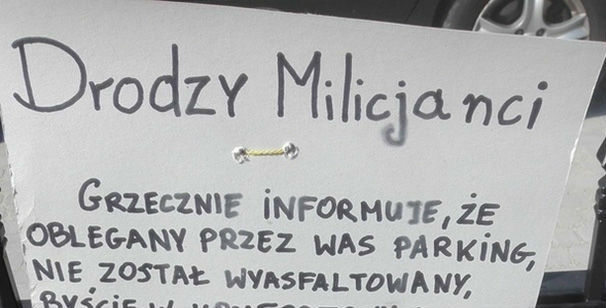 Drodzy Milicjanci
GRZECZNIE INFORMUJE, ŻE
OBLEGANY PRZEZ WAS PARKING,
NIE ZOSTAŁ WYASFALTOWANY,
BYŚCIE W